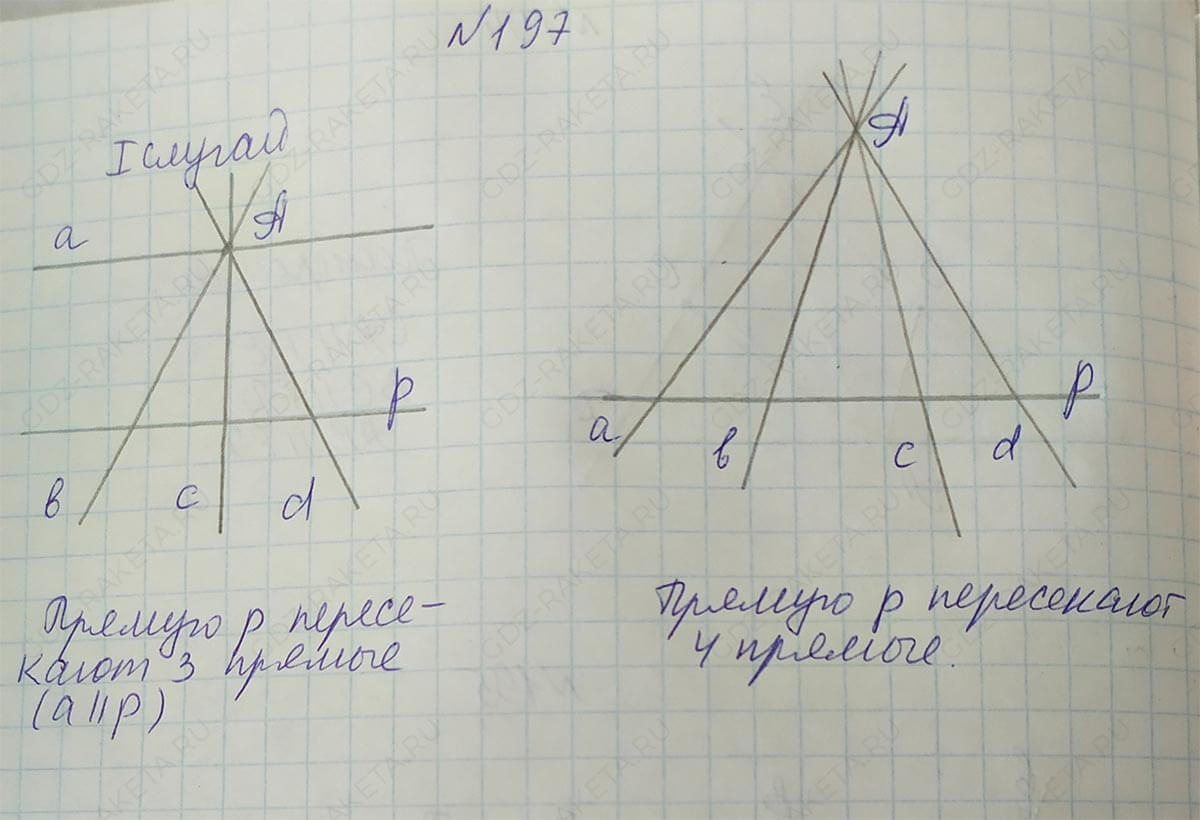 №197
I случай
A
a
p
в c d
Прямую p пересе-
кают 3 прямые
(a || p)
A
p
a в c d
Прямую p пересекают
4 прямые.
GDZ-RAKETA.RU